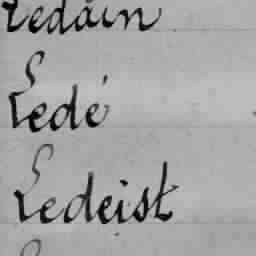 Ledain
Ledé
Ledeist